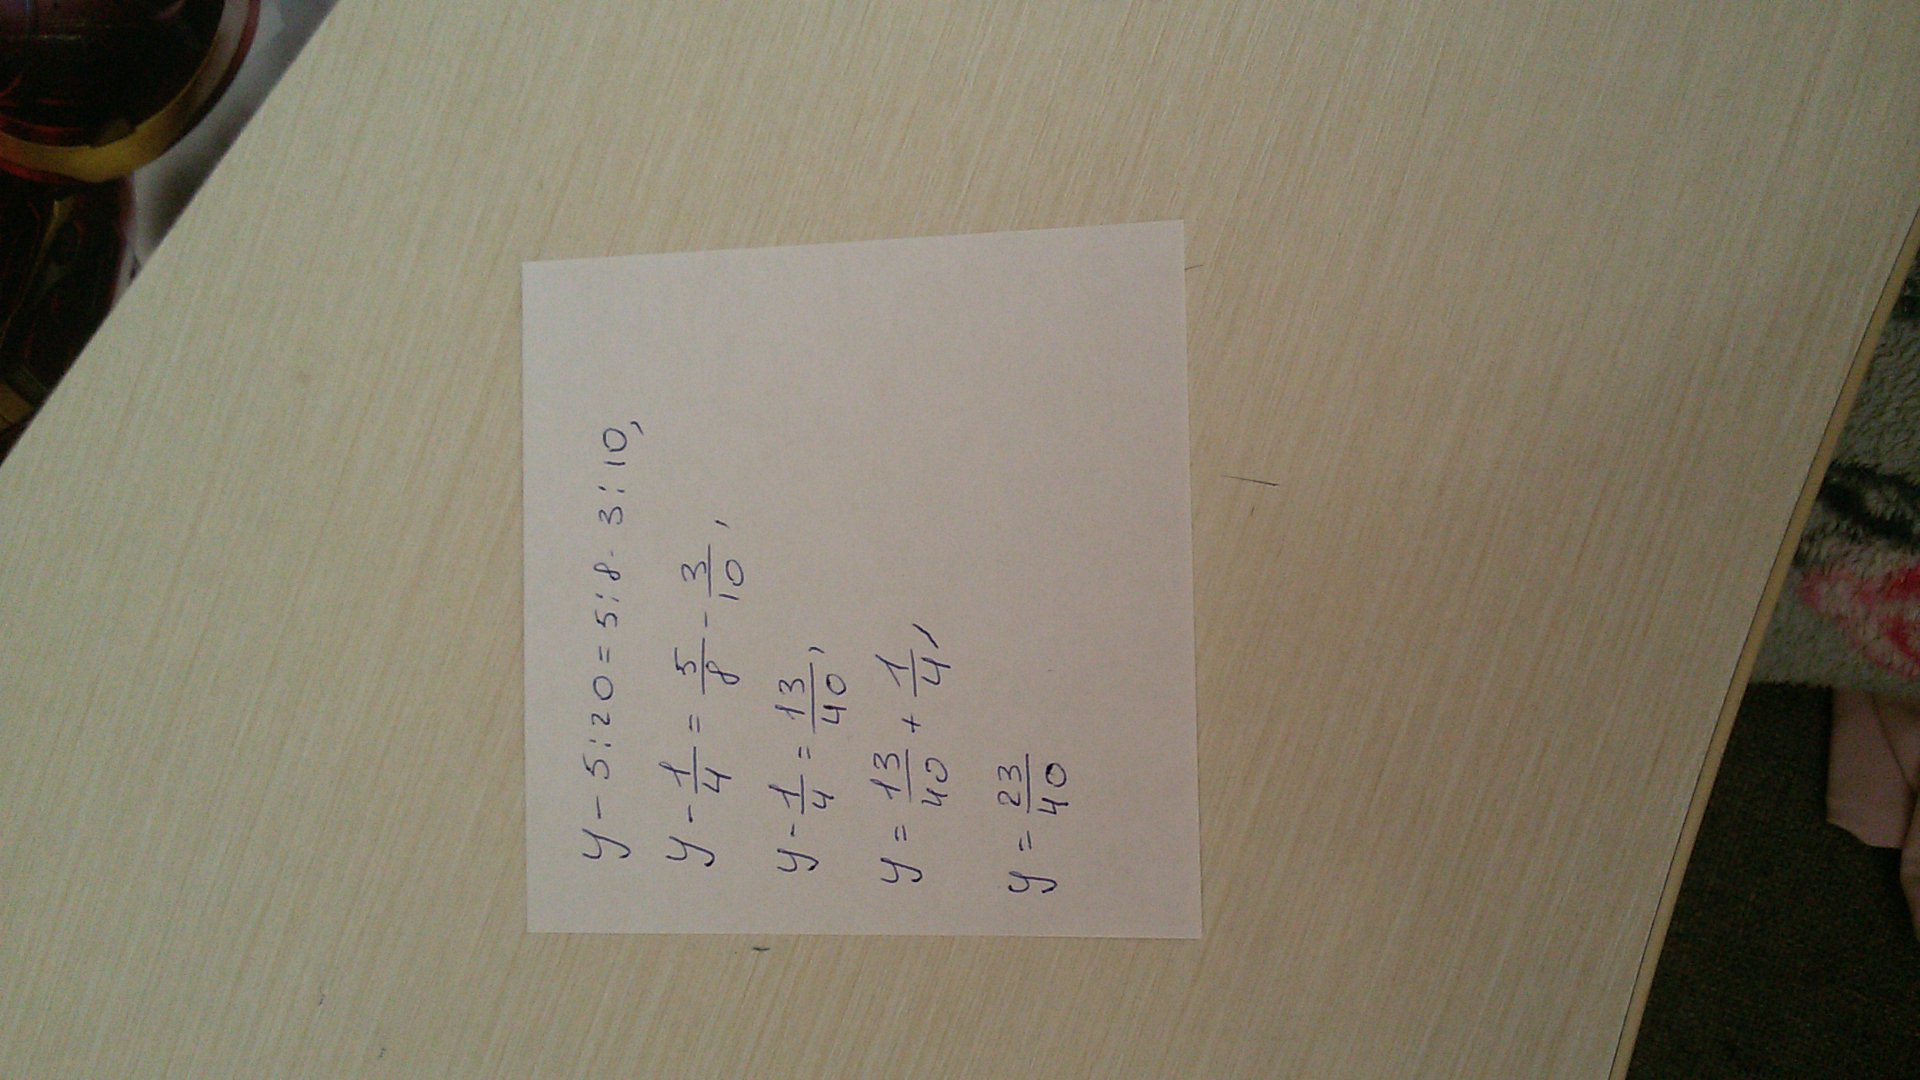 y - 5:20 = 5:8 - 3:10,
y - 1/4 = 5/8 - 3/10,
y - 1/4 = 13/40,
y = 13/40 + 1/4,
y = 23/40